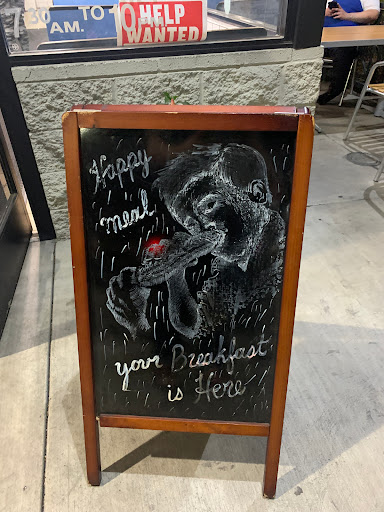 7:30 AM. TO 10
HELP
WANTED
Happy
meal
your Breakfast
is Here